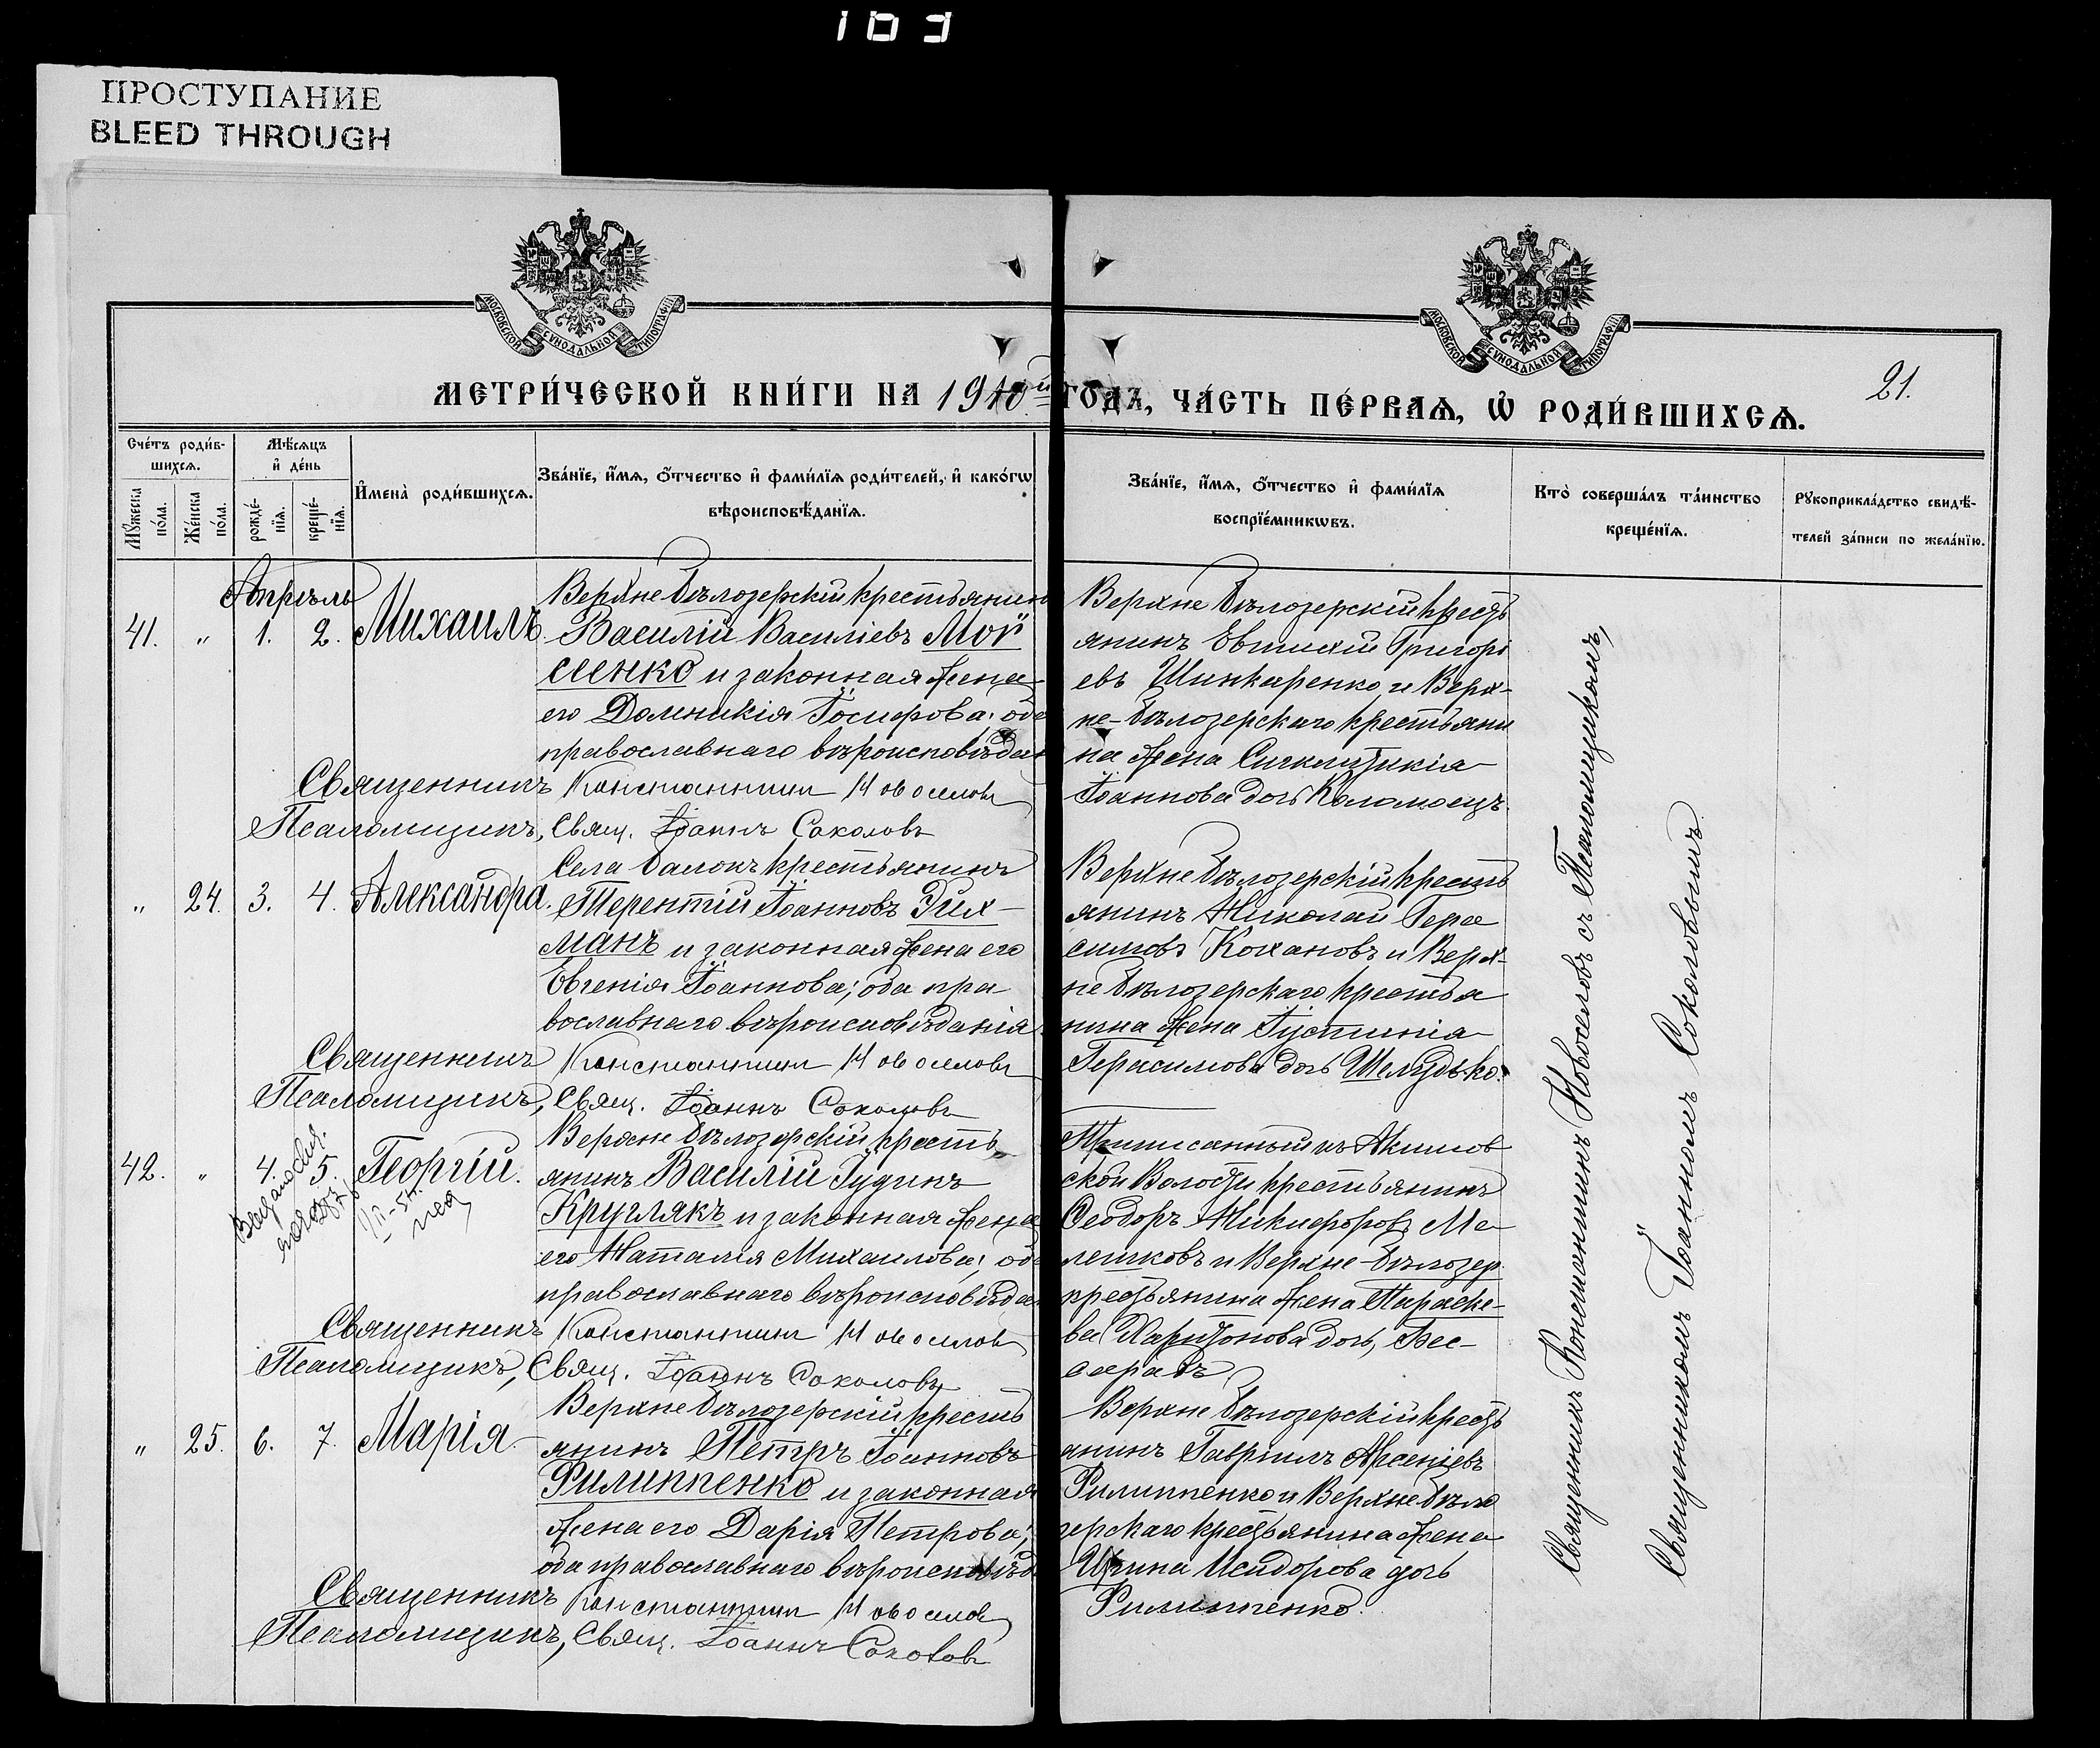 103
ПРОСТУПАНИЕ
BLEED THROUGH
МОСКОВСКОЙ СѴНОДАЛЬНОЙ ТИПОГРАФІИ
МОСКОВСКОЙ СѴНОДАЛЬНОЙ ТИПОГРАФІИ
МЕТРИ́ЧЕСКОЙ КНИ́ГИ НА 1910й ГОДЪ, ЧА́СТЬ ПЕ́РВАѦ, Ѡ РОДИ́ВШИХСѦ.
21.
Сче́тъ роди́в-
шихсѧ.
Мѣ́сѧцъ
и҆ де́нь
Мꙋ́жеска по́ла.
Же́нска по́ла.
рожде́-нїѧ.
креще́-нїѧ.
И҆мена̀ роди́вшихсѧ.
Зва́нїе, и҆́мѧ, ѻ҆́тчество и҆ фами́лїѧ роди́телей, и҆ како́гѡ
вѣроисповѣ́данїѧ.
Зва́нїе, и҆́мѧ, ѻ҆́тчество и҆ фами́лїѧ
воспрїе́мникѡвъ.
Кто̀ соверша́лъ та́инство
креще́нїѧ.
Рꙋкоприкла́дство свидѣ́-
телей за́писи по жела́нїю.
Апрѣль
41. " 1. 2. Михаилъ.
Верхнебѣлозерскій крестьянин
Василій Василіевъ Мой
сеенко и законная жена
его Домникія Іосифова; об
православнаго вѣроисповѣдан
Верхнебѣлозерскій крестъ
янинъ Евтихій Григорі
евъ Шинкаренко и Верх-
не-бѣлозерскаго крестьяни
на жена Синклитикія
Іоаннова дочь Коломоецъ.
Священникъ Константин Новоселов
Псаломщикъ, Свящ. Іоаннъ Соколовъ
" 24. 3. 4. Александра.
Села Балокъ крестьянинъ
Терентій Іоанновъ Рих-
манъ и законная жена его
Евгенія Іоаннова; оба пра
вославнаго вѣроисповѣданія
Верхнебѣлозерскій кресть
янинъ Николай Гера
симовъ Кохановъ и Верх-
небѣлозерскаго крестья
нина жена Іустинія
Герасимова дочь Шелудько.
Священникъ Константин Новоселов
Псаломщикъ, Свящ. Іоаннъ Соколовъ
42. " 4. 5. Георгій.
Верхнебѣлозерскій кресть
янинъ Василій Іудинъ
Круглякъ и законная жена
его Наталія Михаилова; об
православнаго вѣроисповѣда
Приписанный къ Акимов
ской Волости крестьянинъ
Ѳеодоръ Никифоровъ Ме
лешковъ и Верхне-бѣлозер.
крестьянина жена Параске-
ва Харитонова дочь, Бес-
Священникъ Константин Новоселов
Псаломщикъ, Свящ. Іоаннъ Соколовъ
" 25. 6. 7. Марія
Верхнебѣлозерскій кресть
янинъ Петръ Іоанновъ
Филиппенко и законная
жена его Дарія Петрова;
оба православнаго вѣроисповѣд
Верхнебѣлозерскій кресть
янинъ Гавріилъ Арсеніевъ
Филиппенко и Верхнебѣло
зерскаго крестьянина жена
Ирина Исидорова дочь
Филиппенко.
Священникъ Константин Новоселов
Псаломщикъ, Свящ. Іоаннъ Соколовъ
Священникъ Константинъ Новоселовъ съ Псаломщикомъ,
Священникомъ Іоанномъ Соколовымъ.